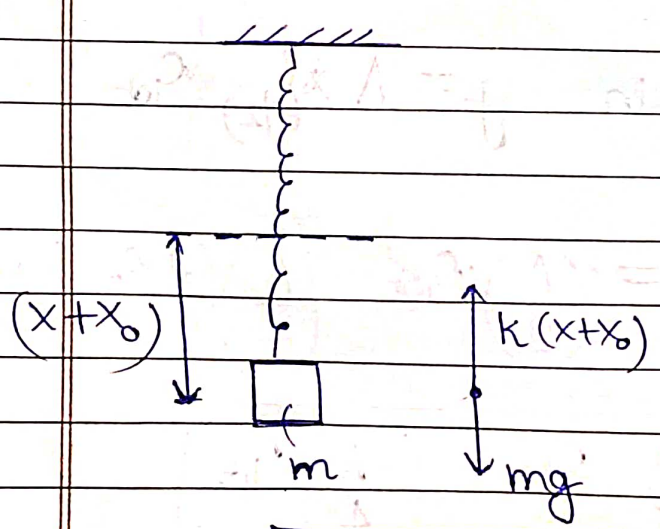 (x+x₀)
k(x+x₀)
m
mg